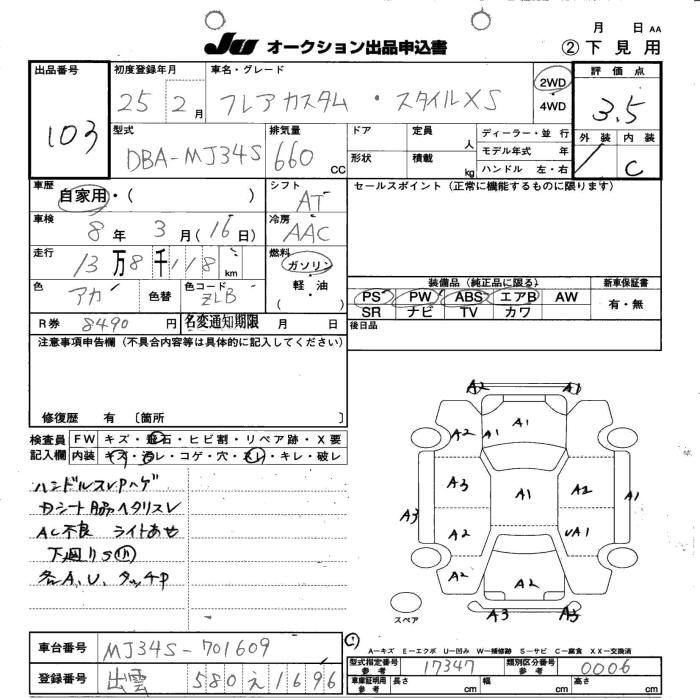 月 日 AA
JU オークション出品申込書
② 下見用
出品番号
103
初度登録年月
25 2月
車名・グレード
フレアカスタム ・ スタイルXS
2WD
・
4WD
評価点
3.5
外装 内装
/ C
型式
DBA-MJ34S
排気量
660 CC
ドア 定員 人
形状 積載 kg
ディーラー・並行
モデル年式 年
ハンドル 左・右
車歴
自家用・( )
シフト
AT
セールスポイント(正常に機能するものに限ります)
車検
8年 3月(16日)
冷房
AAC
走行
13万8千118 km
燃料
ガソリン
・
軽・油
( )
色
アカ 色替
色コード
ZLB
装備品(純正品に限る)
PS PW ABS エアB AW
SR ナビ TV カワ
新車保証書
有・無
R券 8490円 名変通知期限 月 日
後日品
注意事項申告欄(不具合内容等は具体的に記入してください)
修復歴 有 〔箇所 〕
検査員 FW キズ・飛石・ヒビ割・リペア跡・X要
記入欄 内装 キズ・汚レ・コゲ・穴・スレ・キレ・破レ
ハンドルスレPハゲ
Dシート脇ヘタリスレ
AC不良 ライトあせ
下廻りS小
各A、U、タッチP
A2 A1
A2 A1 A1
A3 A1 A2
A3 A1
A2 UA1
A2 A2
A3 A3
スペア
①
A－キズ E－エクボ U－凹み W－補修跡 S－サビ C－腐食 XX－交換済
車台番号 MJ34S-701609
登録番号 出雲 580 え 1696
型式指定番号
参考
17347
類別区分番号
参考
0006
車庫証明用
参考
長さ cm 幅 cm 高さ cm